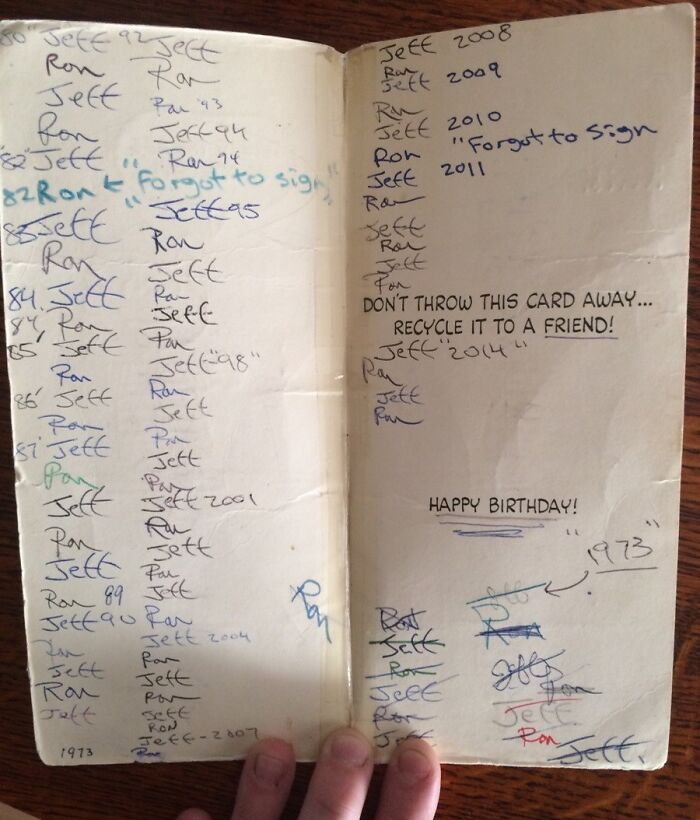 80" Jeff 92 Jeff
Ron Ron
Jeff Ron '93
Ron Jeff 94
"82" Jeff Ron 94
82 Ron ← "Forgot to sign"
83 Jeff "Jeff 95
Ron Ron
Jeff
84. Jeff Ron
84' Ron Jeff
85' Jeff Ron
Ron Jeff "98"
86' Jeff Ron
Ron Jeff
87' Jeff Ron
Ron Jeff
Jeff Ron
Ron Jeff 2001
Jeff Ron
Ron 89 Jeff
Jeff 90 Ron
Ron Jeff
Jeff Ron
Ron Jeff 2004
Jeff Ron
1973 Jeff
Ron
Jeff
RON
Jeff - 2007
Ron
Ron
Jeff 2008
Ron
Jeff 2009
Ron
Jeff 2010
Ron "Forgot to Sign
Jeff 2011
Ron
Jeff
Ron
Jeff
Ron
DON'T THROW THIS CARD AWAY...
RECYCLE IT TO A FRIEND!
Jeff "2014"
Ron
Jeff
Ron
HAPPY BIRTHDAY!
"1973"
Jeff
Ron Ron
Jeff
Ron Jeff
Jeff Ron
Ron Jeff
Jeff Ron
Jeff.